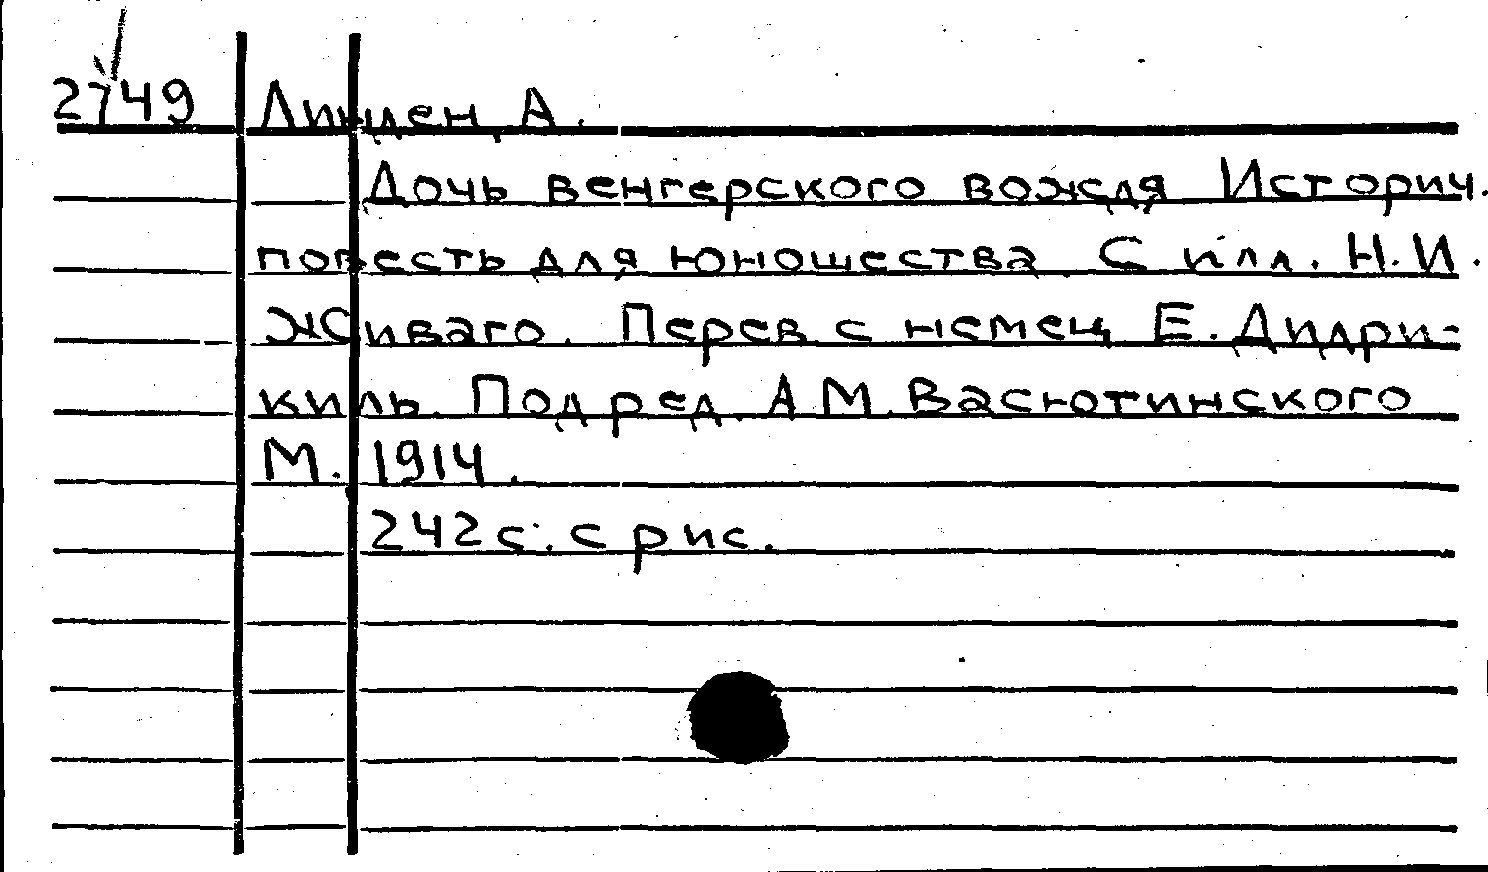 2749 Линден, А.
Дочь венгерского вождя Историч.
повесть для юношества. С илл. Н.И.
Живаго. Перев. с немец. Е. Дидри-
киль. Под ред. А.М. Васютинского
М. 1914.
242 с. с рис.